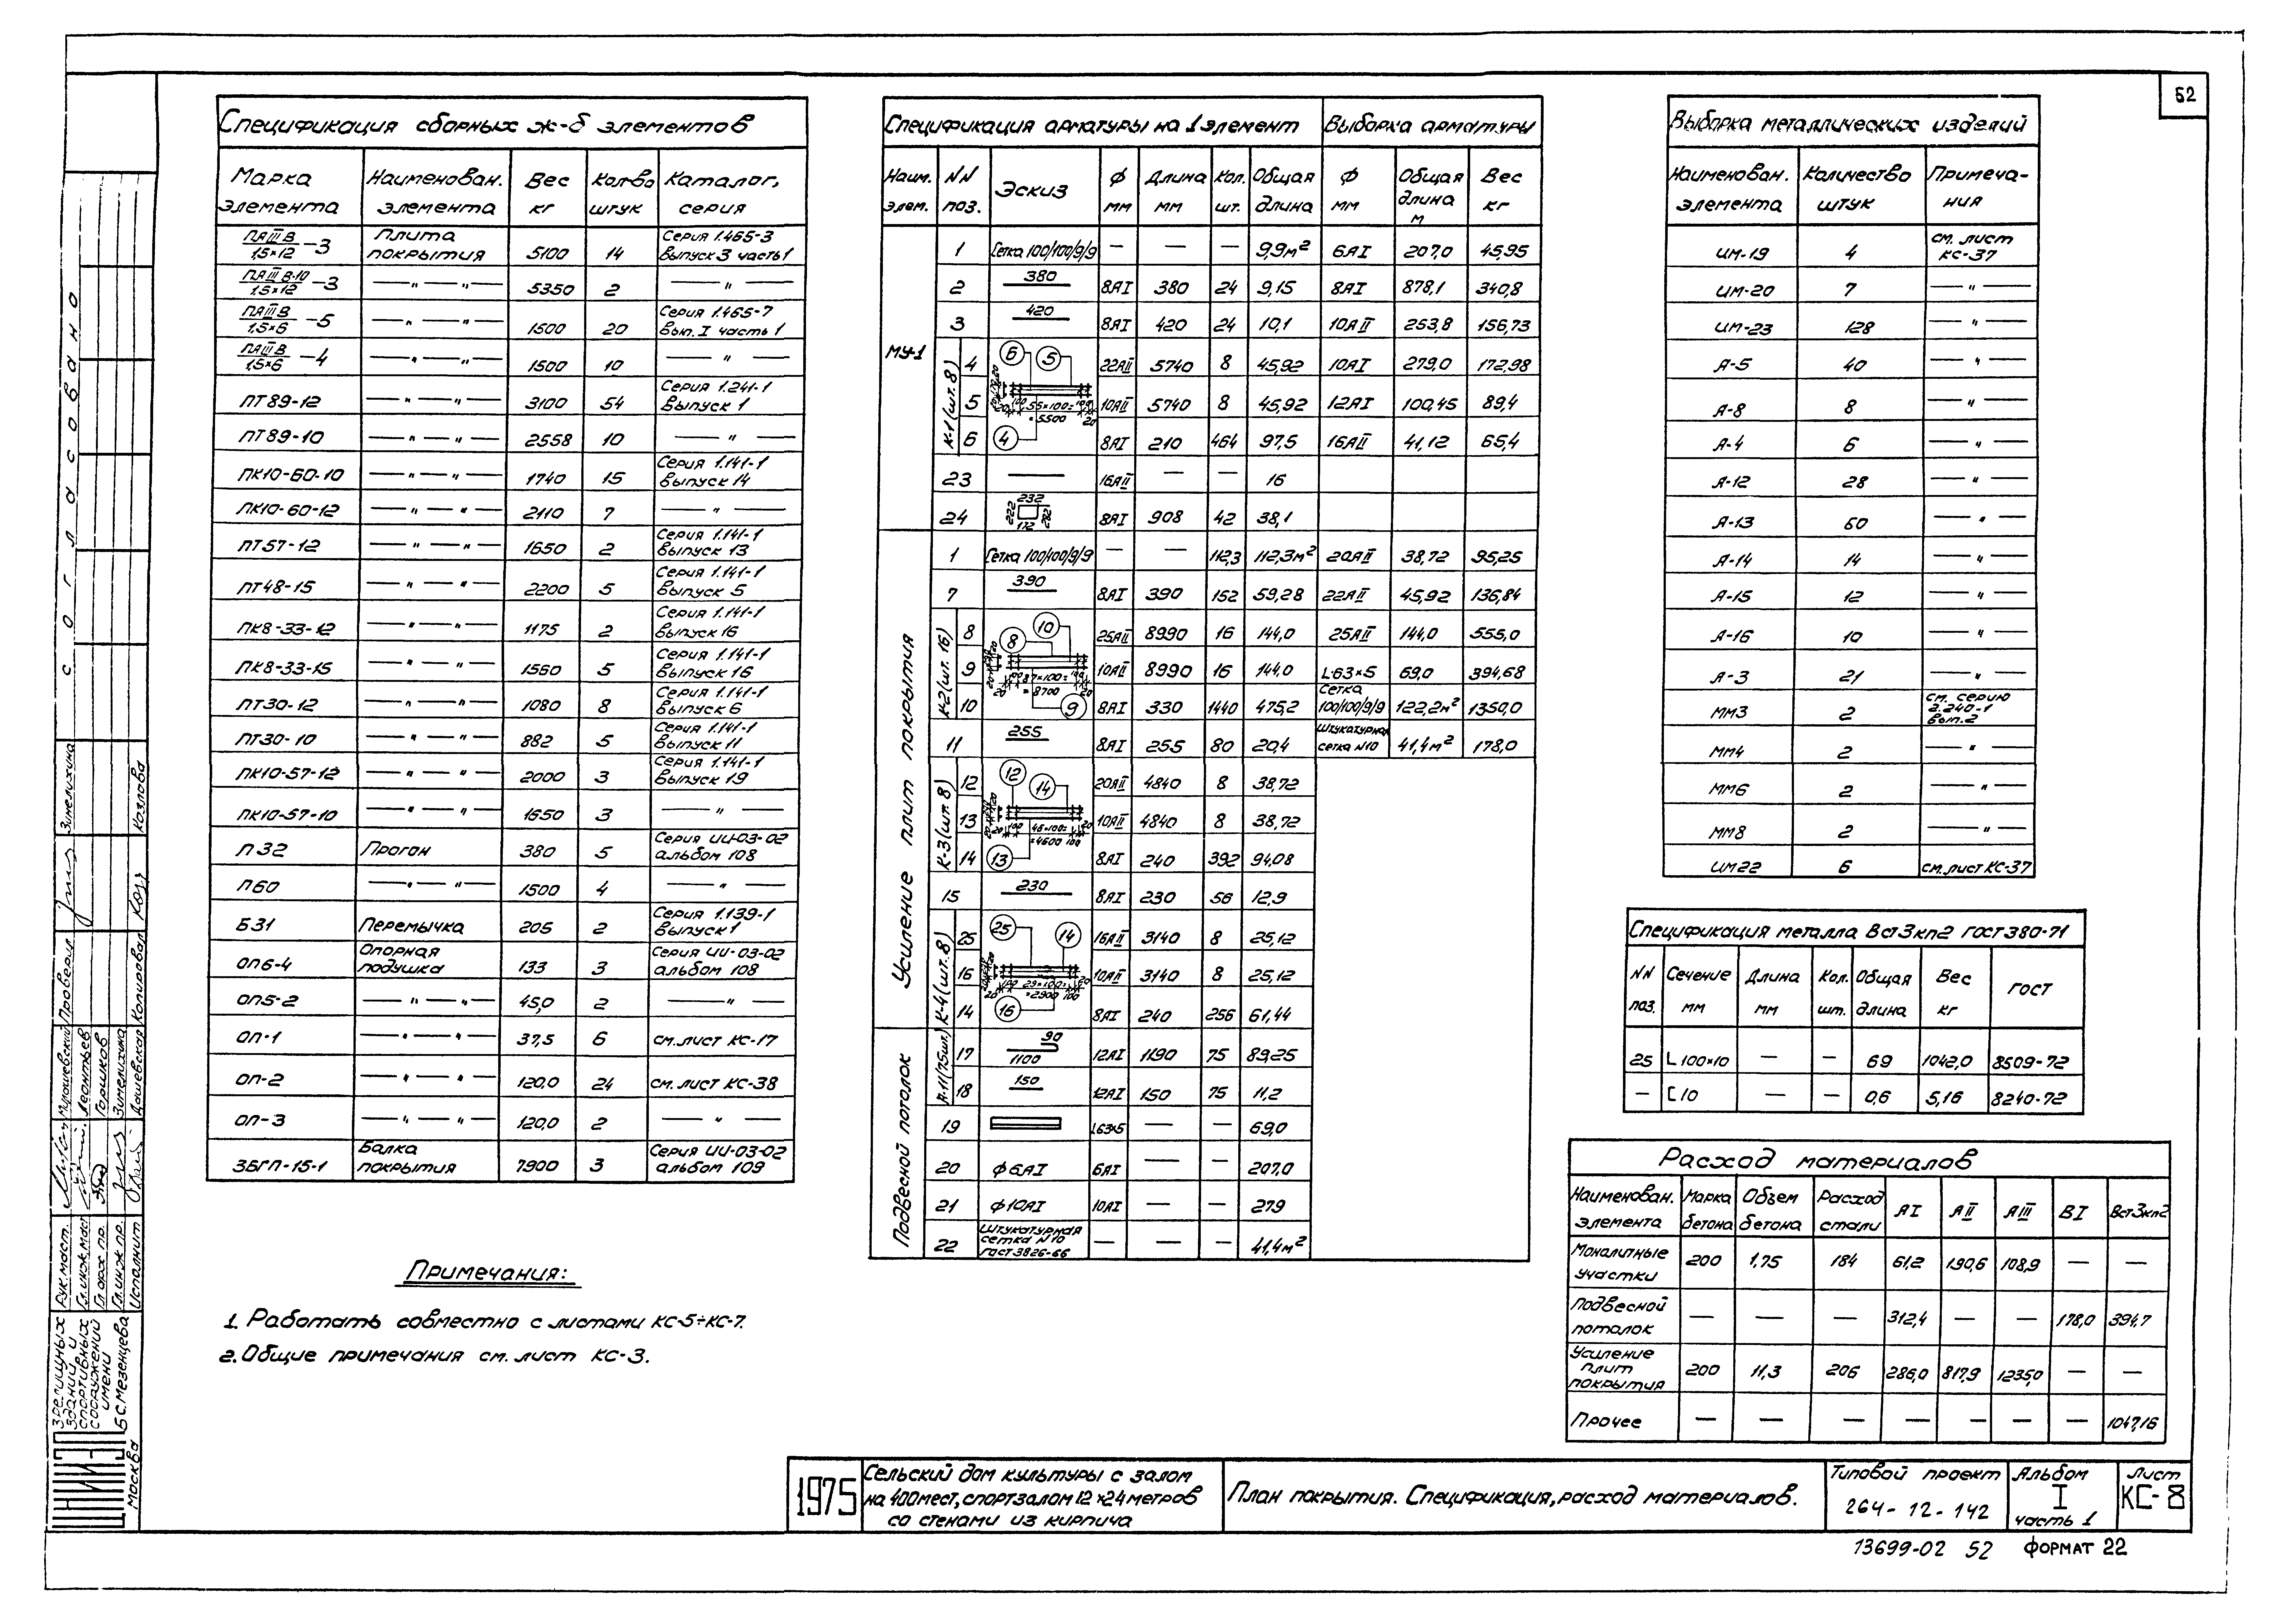 52
Спецификация сборных ж-б элементов
Марка элемента | Наименован. элемента | Вес кг | Кол-во штук | Каталог, серия
ПАIIIВ/1,5×12 -3 | Плита покрытия | 5100 | 14 | Серия 1.465-3 Выпуск 3 часть 1
ПАIIIВ-10/1,5×12 -3 | — " — " — | 5350 | 2 | — " —
ПАIIIВ/1,5×6 -5 | — " — " — | 1500 | 20 | Серия 1.465-7 Вып. I часть 1
ПАIIIВ/1,5×6 -4 | — " — " — | 1500 | 10 | — " —
ПТ89-12 | — " — " — | 3100 | 54 | Серия 1.241-1 Выпуск 1
ПТ89-10 | — " — " — | 2558 | 10 | — " —
ПК10-60-10 | — " — " — | 1740 | 15 | Серия 1.141-1 Выпуск 14
ПК10-60-12 | — " — " — | 2110 | 7 | — " —
ПТ57-12 | — " — " — | 1650 | 2 | Серия 1.141-1 Выпуск 13
ПТ48-15 | — " — " — | 2200 | 5 | Серия 1.141-1 Выпуск 5
ПК8-33-12 | — " — " — | 1175 | 2 | Серия 1.141-1 Выпуск 16
ПК8-33-15 | — " — " — | 1560 | 5 | Серия 1.141-1 Выпуск 16
ПТ30-12 | — " — " — | 1080 | 8 | Серия 1.141-1 Выпуск 6
ПТ30-10 | — " — " — | 882 | 5 | Серия 1.141-1 Выпуск 11
ПК10-57-12 | — " — " — | 2000 | 3 | Серия 1.141-1 Выпуск 19
ПК10-57-10 | — " — " — | 1650 | 3 | — " —
П32 | Прогон | 380 | 5 | Серия ИИ-03-02 альбом 108
П60 | — " — " — | 1500 | 4 | — " —
Б31 | Перемычка | 205 | 2 | Серия 1.139-1 Выпуск 1
ОП6-4 | Опорная подушка | 133 | 3 | Серия ИИ-03-02 альбом 108
ОП5-2 | — " — " — | 45,0 | 2 | — " —
ОП-1 | — " — " — | 37,5 | 6 | см. лист КС-17
ОП-2 | — " — " — | 120,0 | 24 | см. лист КС-38
ОП-3 | — " — " — | 120,0 | 2 | — " —
3БГП-15-1 | Балка покрытия | 7900 | 3 | Серия ИИ-03-02 альбом 109
Примечания:
1. Работать совместно с листами КС-5÷КС-7.
2. Общие примечания см. лист КС-3.
Спецификация арматуры на 1 элемент
Наим. элем. | NN поз. | Эскиз | Ф мм | Длина мм | Кол. шт. | Общая длина
МУ-1
1 | Сетка 100/100/9/9 | — | — | — | 9,9м²
2 | 380 | 8АI | 380 | 24 | 9,15
3 | 420 | 8АI | 420 | 24 | 10,1
К-1 (шт. 8)
6 5 55×100= =5500 4
4 | 22АII | 5740 | 8 | 45,92
5 | 10АII | 5740 | 8 | 45,92
6 | 8АI | 210 | 464 | 97,5
23 | — | 16АII | — | — | 16
24 | 232 222 282 172 | 8АI | 908 | 42 | 38,1
Усиление плит покрытия
1 | Сетка 100/100/9/9 | — | — | 112,3 | 112,3м²
7 | 390 | 8АI | 390 | 152 | 59,28
К-2 (шт. 16)
8 10 87×100= =8700 9
8 | 25АII | 8990 | 16 | 144,0
9 | 10АII | 8990 | 16 | 144,0
10 | 8АI | 330 | 1440 | 475,2
11 | 255 | 8АI | 255 | 80 | 20,4
К-3 (шт. 8)
12 14 46×100= =4600 13
12 | 20АII | 4840 | 8 | 38,72
13 | 10АII | 4840 | 8 | 38,72
14 | 8АI | 240 | 392 | 94,08
15 | 230 | 8АI | 230 | 56 | 12,9
К-4 (шт. 8)
25 14 29×100= =2900 16
25 | 16АII | 3140 | 8 | 25,12
16 | 10АII | 3140 | 8 | 25,12
14 | 8АI | 240 | 256 | 61,44
Подвесной потолок
А-11 (75шт.)
17 | 90 1100 | 12АI | 1190 | 75 | 89,25
18 | 150 | 12АI | 150 | 75 | 11,2
19 | L63×5 | — | — | 69,0
20 | ф6АI | 6АI | — | — | 207,0
21 | ф10АI | 10АI | — | — | 279
22 | Штукатурная сетка N10 ГОСТ 3826-66 | — | — | — | 41,4м²
Выборка арматуры
Ф мм | Общая длина м | Вес кг
6АI | 207,0 | 45,95
8АI | 878,1 | 340,8
10АII | 253,8 | 156,73
10АI | 279,0 | 172,98
12АI | 100,45 | 89,4
16АII | 41,12 | 65,4
20АII | 38,72 | 95,25
22АII | 45,92 | 136,84
25АII | 144,0 | 555,0
L63×5 | 69,0 | 394,68
Сетка 100/100/9/9 | 122,2м² | 1350,0
Штукатурная сетка N10 | 41,4м² | 178,0
Выборка металлических изделий
Наименован. элемента | Количество штук | Примечания
ИМ-19 | 4 | см. лист КС-37
ИМ-20 | 7 | — " —
ИМ-23 | 128 | — " —
А-5 | 40 | — " —
А-8 | 8 | — " —
А-4 | 6 | — " —
А-12 | 28 | — " —
А-13 | 60 | — " —
А-14 | 14 | — " —
А-15 | 12 | — " —
А-16 | 10 | — " —
А-3 | 21 | — " —
ММ3 | 2 | см. серию 2.240-1 вып. 2
ММ4 | 2 | — " —
ММ6 | 2 | — " —
ММ8 | 2 | — " —
ИМ22 | 6 | см. лист КС-37
Спецификация металла Вст3кп2 ГОСТ 380-71
NN поз. | Сечение мм | Длина мм | Кол. шт. | Общая длина | Вес кг | ГОСТ
25 | L100×10 | — | — | 69 | 1042,0 | 8509-72
— | [10 | — | — | 0,6 | 5,16 | 8240-72
Расход материалов
Наименован. элемента | Марка бетона | Объем бетона | Расход стали | АI | АII | АIII | ВI | Вст3кп2
Монолитные участки | 200 | 1,75 | 184 | 61,2 | 190,6 | 108,9 | — | —
Подвесной потолок | — | — | — | 312,4 | — | — | 178,0 | 394,7
Усиление плит покрытия | 200 | 11,3 | 206 | 286,0 | 817,9 | 1235,0 | — | —
Прочее | — | — | — | — | — | — | — | 1047,16
1975
Сельский дом культуры с залом
на 400 мест, спортзалом 12×24 метров
со стенами из кирпича
План покрытия. Спецификация, расход материалов.
Типовой проект
264-12-142
Альбом
I
часть 1
Лист
КС-8
13699-02 52 ФОРМАТ 22
Согласовано
ЦНИИЭП
зрелищных
зданий и
спортивных
сооружений
имени
Б.С.Мезенцева
Москва
Рук. маст.
Гл. инж. маст
Гл. арх. пр.
Гл. инж. пр.
Исполнит
Мурашевский
Леонтьев
Горшков
Зимелихина
Дашевская
Проверил
Копировал
Зимелихина
Козлова